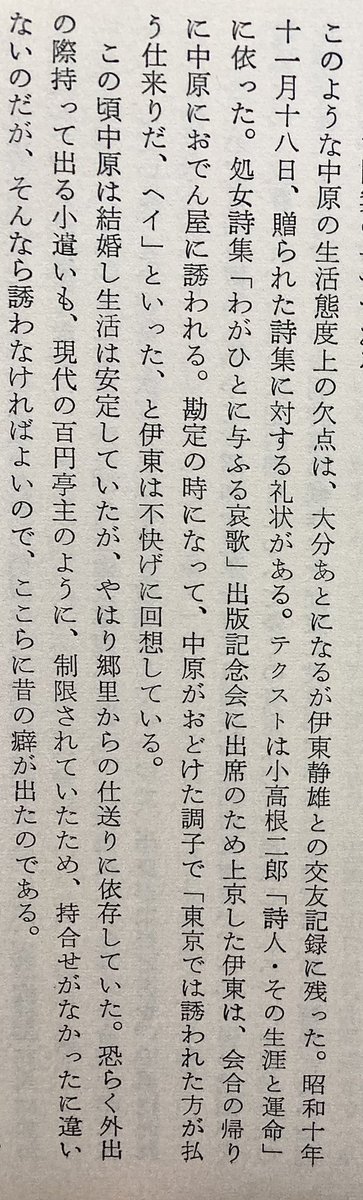 このような中原の生活態度上の欠点は、大分あとになるが伊東静雄との交友記録に残った。昭和十年
十一月十八日、贈られた詩集に対する礼状がある。テクストは小高根二郎「詩人・その生涯と運命」
に依った。処女詩集「わがひとに与ふる哀歌」出版記念会に出席のため上京した伊東は、会合の帰り
に中原におでん屋に誘われる。勘定の時になって、中原がおどけた調子で「東京では誘われた方が払
う仕来りだ、ヘイ」といった、と伊東は不快げに回想している。
この頃中原は結婚し生活は安定していたが、やはり郷里からの仕送りに依存していた。恐らく外出
の際持って出る小遣いも、現代の百円亭主のように、制限されていたため、持合せがなかったに違い
ないのだが、そんなら誘わなければよいので、ここらに昔の癖が出たのである。